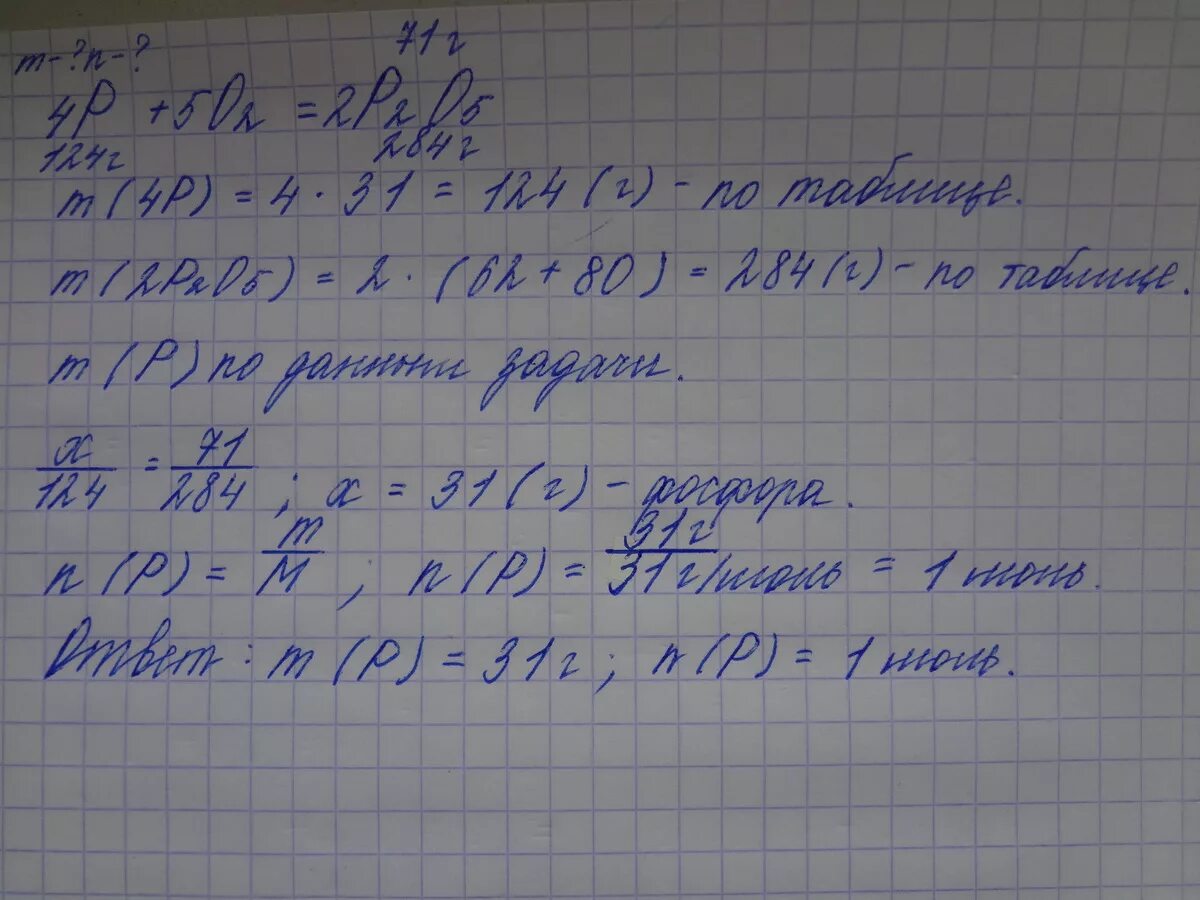 71 г
m-? n-?
4P + 5O₂ = 2P₂O₅
124г 284 г
m (4P) = 4 · 31 = 124 (г) - по таблице.
m (2P₂O₅) = 2 · (62 + 80) = 284 (г) - по таблице.
m (P) по данным задачи.
x/124 = 71/284 ; x = 31 (г) - фосфора.
n (P) = m/M , n (P) = 31г/31г/моль = 1 моль.
Ответ: m (P) = 31 г ; n (P) = 1 моль.